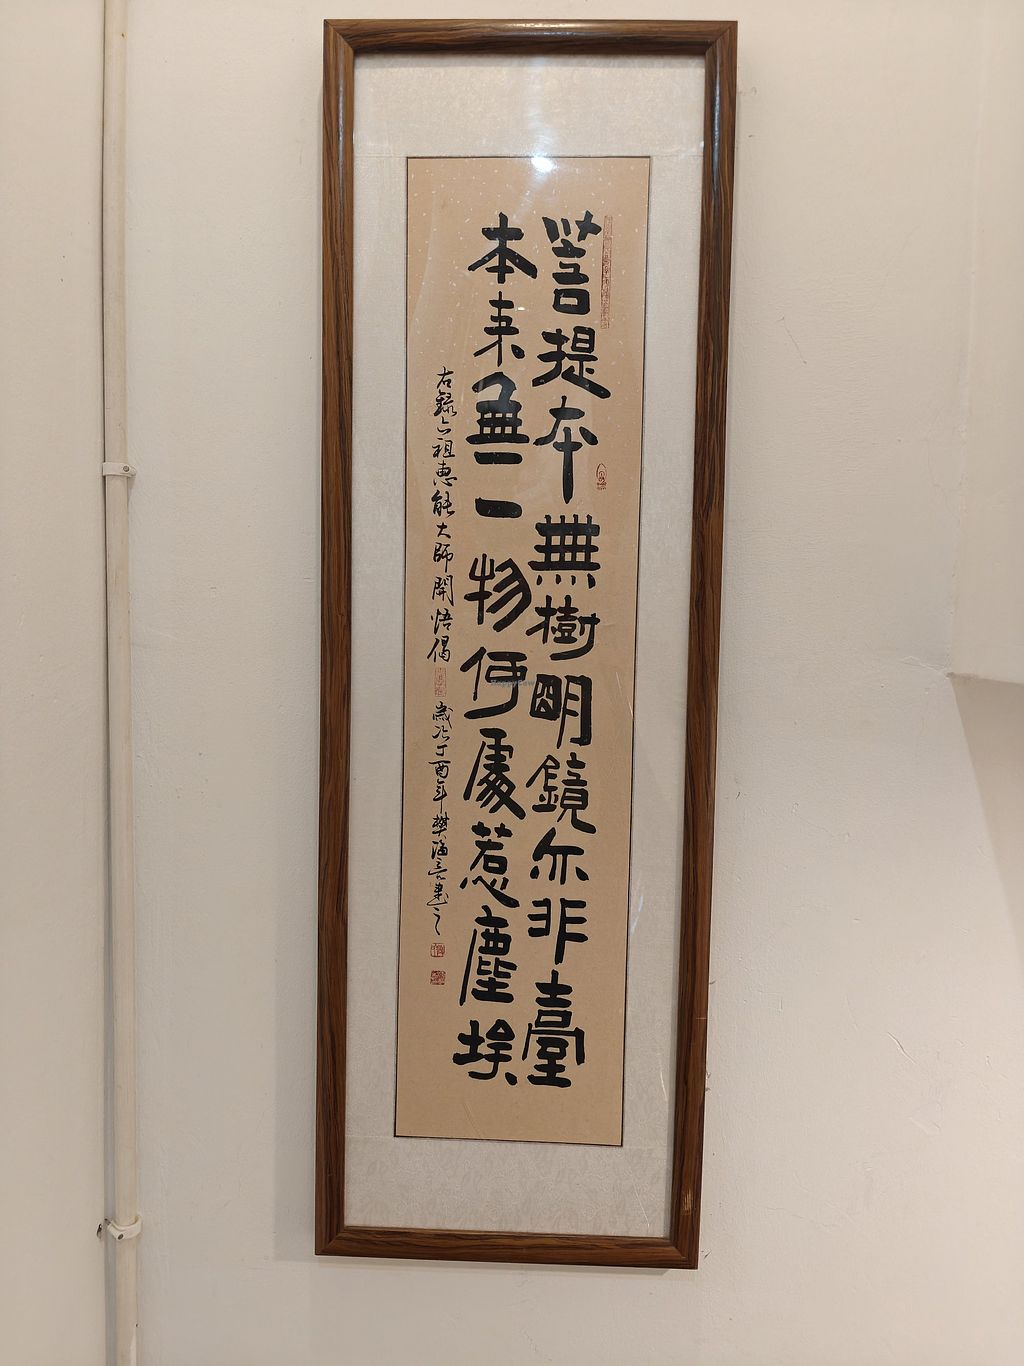 菩提本無樹明鏡亦非臺
本来無一物何處惹塵埃
右録六祖惠能大師開悟偈 歲次丁酉年樊海亮書之